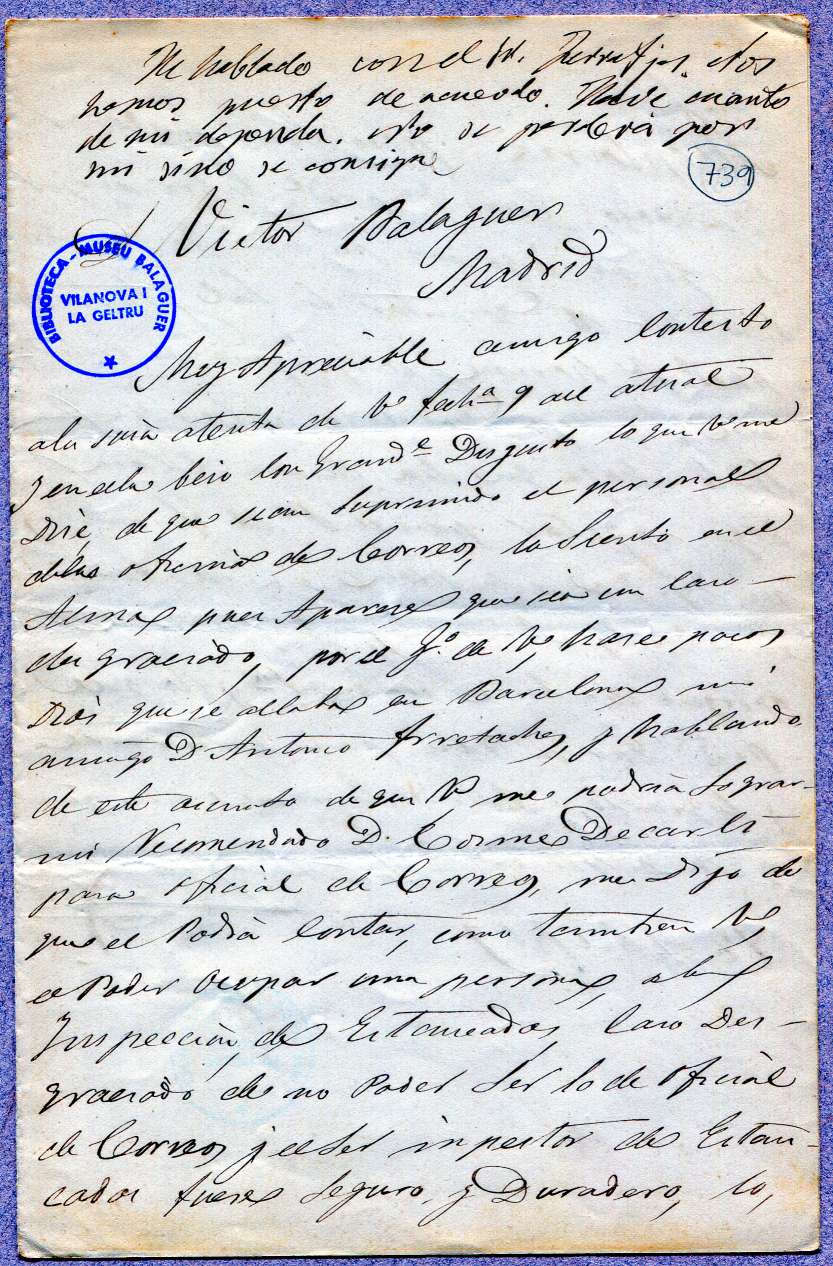 He hablado con el Sr. Ferratjes. Nos
hemos puesto de acuerdo. Haré cuanto
de mi dependa. no se perderá por
mi sino se consigue
739
Victor Balaguer
Madrid
BIBLIOTECA - MUSEU BALAGUER
VILANOVA I
LA GELTRU
Muy Apreciable amigo Contesto
ala suia atenta de V. fecha 9 del atual
y en ella beio con Grande Disgusto lo que V. me
Dise, de que sean suprimido el personal
delas oficinas de Correos, lo Siento en el
Alma pues Aparese que sea un Caso
des graciado, por el de V, hase pocos
Dias que se allaba en Barcelona mi
amigo D Antonio Ferratches, y hablando
de este asunto de que V. me podria Lograr
mi Recomendado D. Cosme Decarli
para oficial de Correos, me Dijo de
que el Podia Contar, como tambien V,
el Poder Ocupar una persona, ala
Inspeccion, de Estancados, Caso Des-
graciado de no Poder Ser lo de Oficial
de Correos y el Ser inpector de Estan-
cados fuese Seguro, y Duradero, lo,